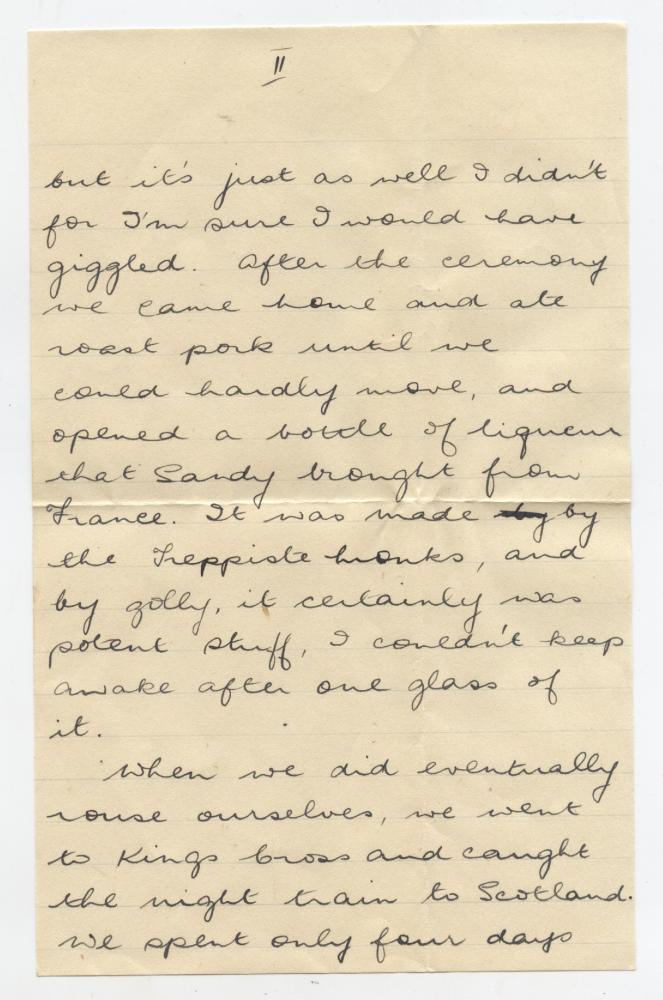 II
but it's just as well I didn't
for I'm sure I would have
giggled. After the ceremony
we came home and ate
roast pork until we
could hardly move, and
opened a bottle of liqueur
that Sandy brought from
France. It was made by by
the Treppiste monks, and
by golly, it certainly was
potent stuff, I couldn't keep
awake after one glass of
it.
When we did eventually
rouse ourselves, we went
to Kings Cross and caught
the night train to Scotland.
We spent only four days